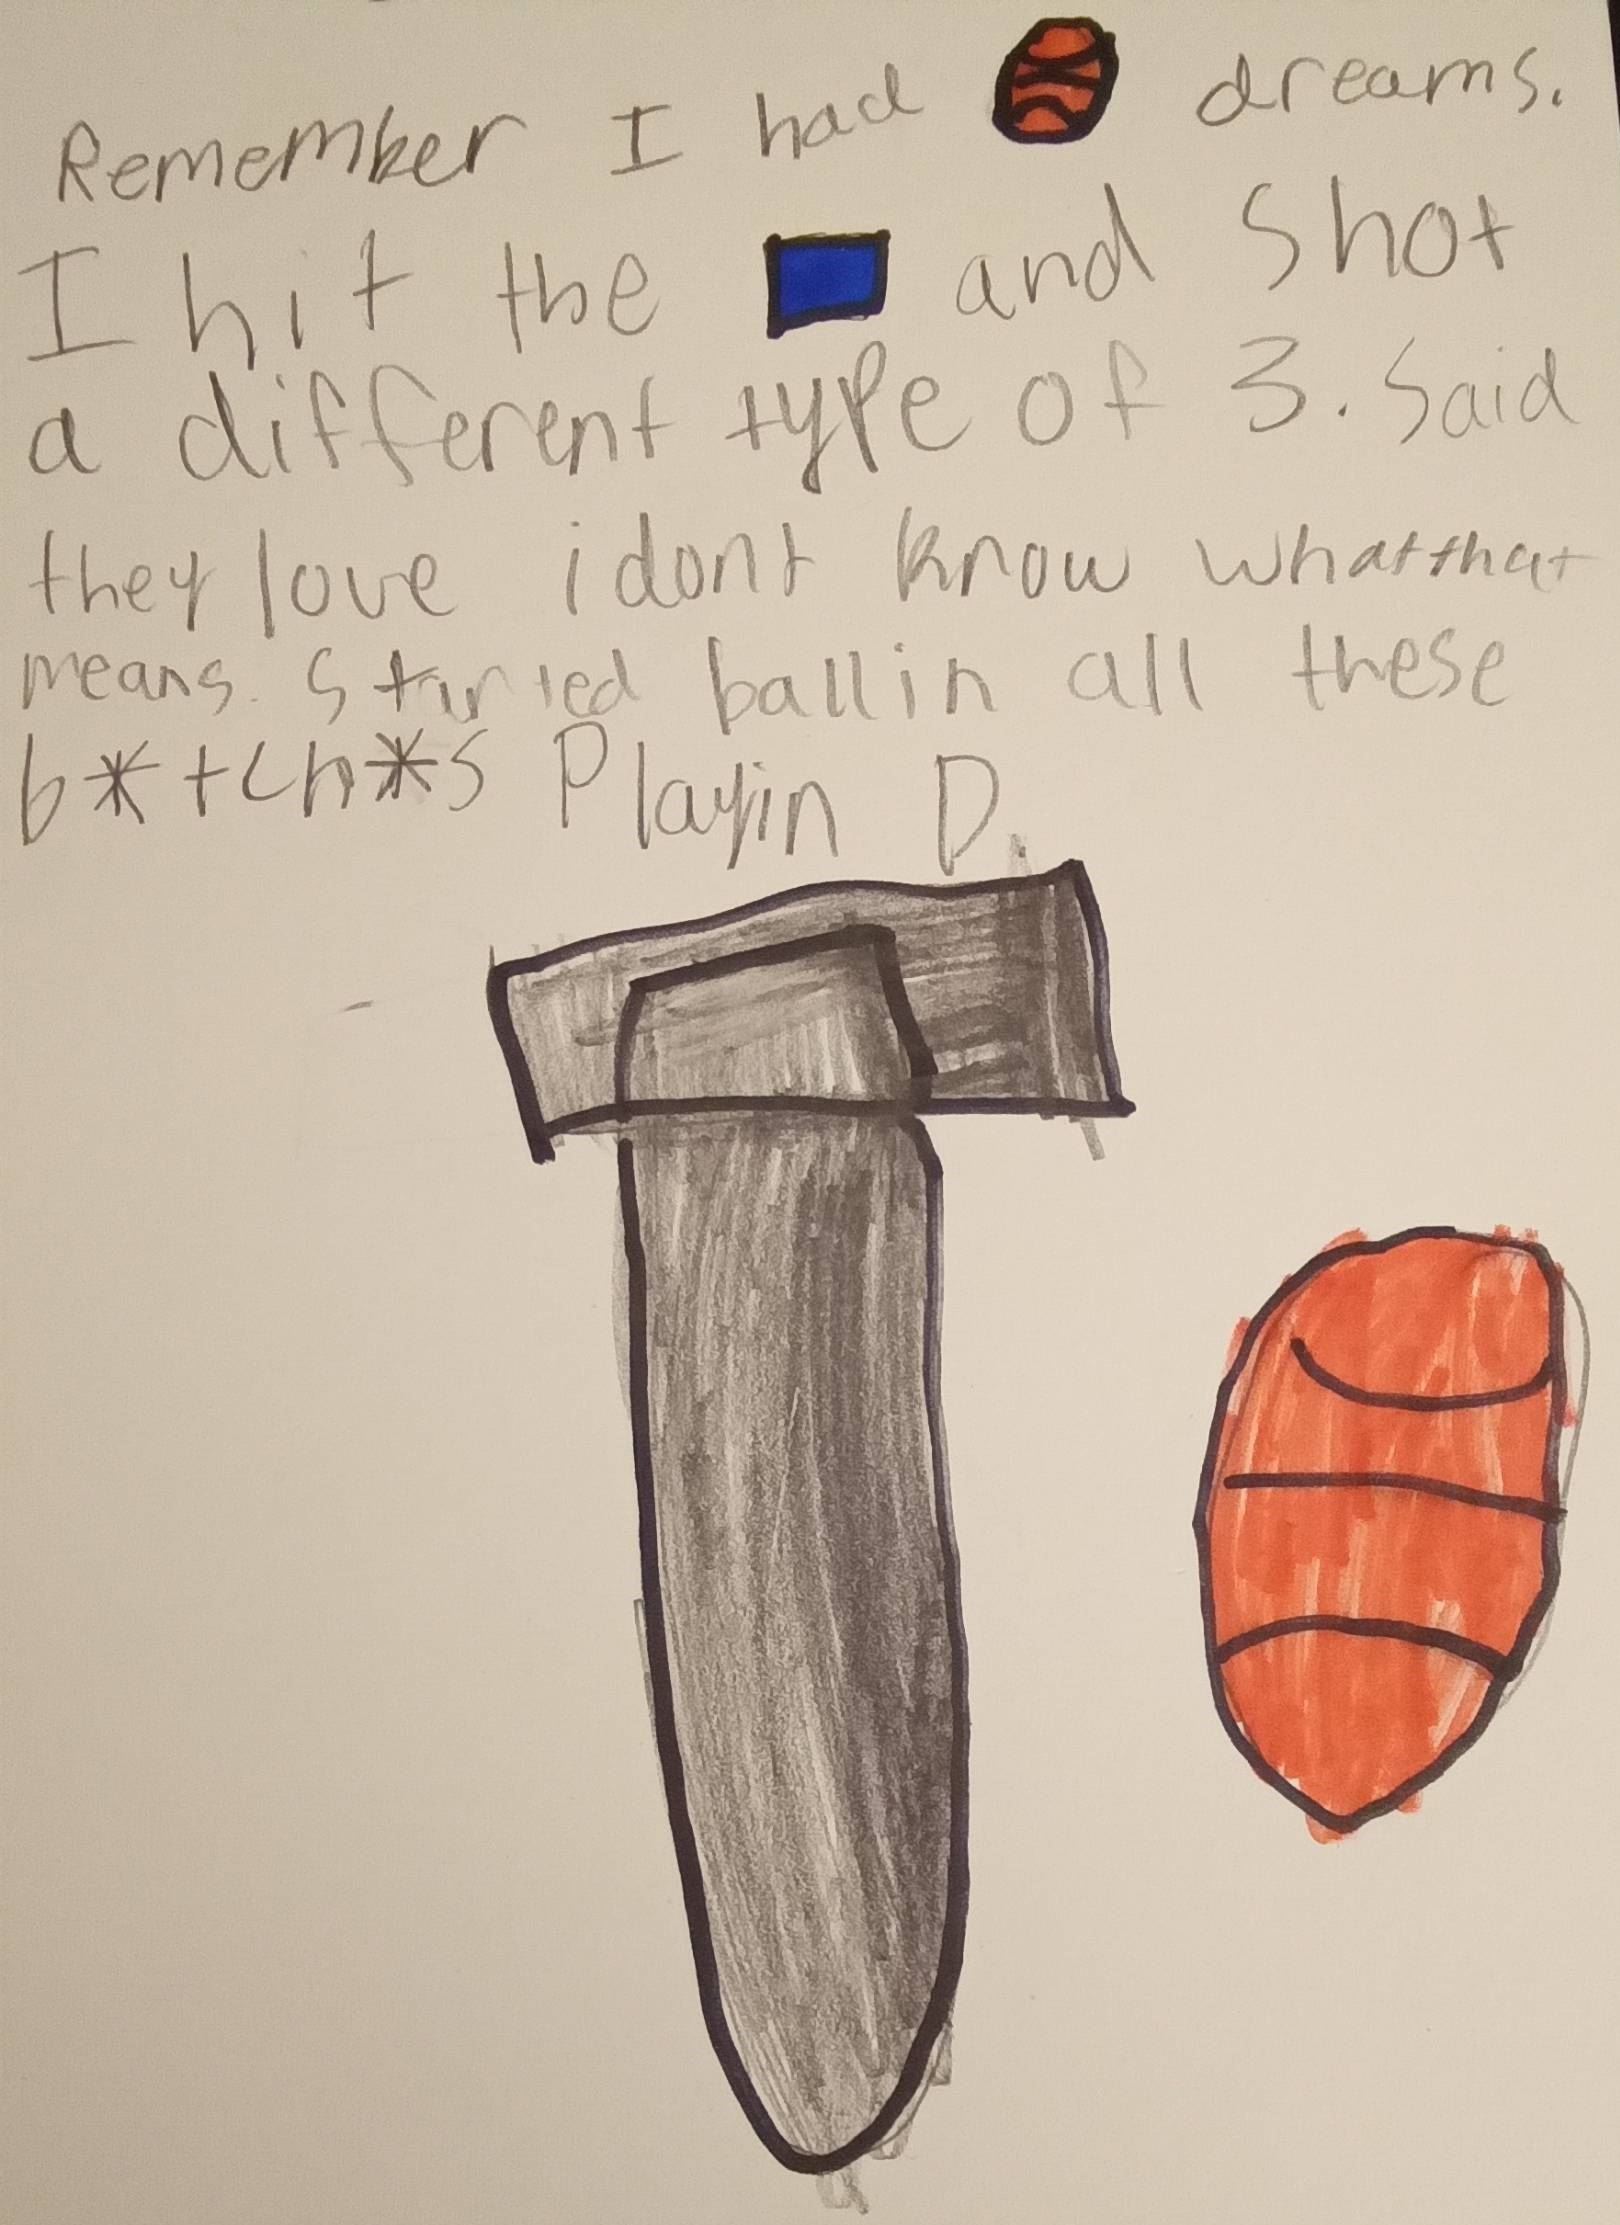 Remember I had dreams.
I hit the and shot
a different type of 3. Said
they love i dont know what that
means. Started ballin all these
b*tch*s Playin D.